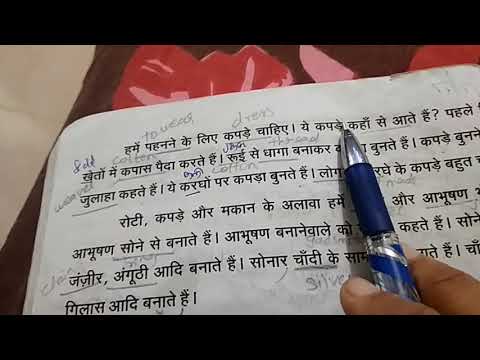 to wear dress
हमें पहनने के लिए कपड़े चाहिए। ये कपड़े कहाँ से आते हैं? पहले
cotton thread
खेतों में कपास पैदा करते हैं। रूई से धागा बनाकर बुनते हैं। कपड़े बुनने
weaver cotton
जुलाहा कहते हैं। ये करघों पर कपड़ा बुनते हैं। के कपड़े बहुत
रोटी, कपड़े और मकान के अलावा हमें और आभूषण
आभूषण सोने से बनाते हैं। आभूषण बनानेवाले को कहते हैं। सोने
जंज़ीर, अंगूठी आदि बनाते हैं। सोनार चाँदी के हैं।
silver
गिलास आदि बनाते हैं।